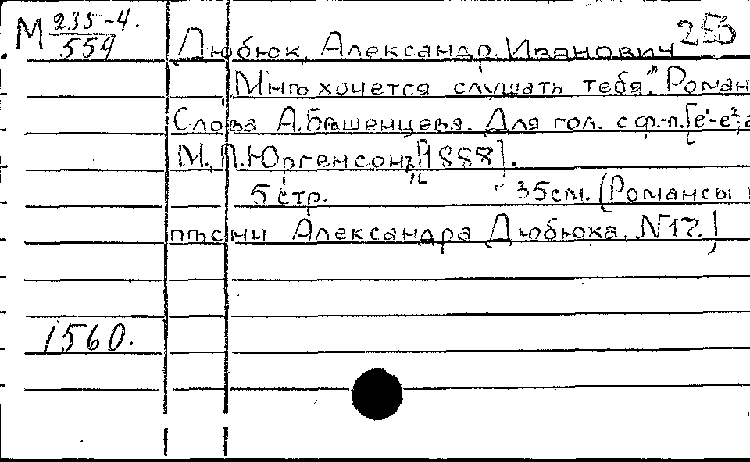 М 235-4. 253
559
Дюбюк, Александр Иванович
"Мнѣ хочется слушать тебя." Роман
Слова А. Башенцева. Для гол. с ф.-п. [e'-e²;
М., П. Юргенсонъ, [1888].
5 стр. 35 см. (Романсы
пѣсни Александра Дюбюка. N 17.)
1560.